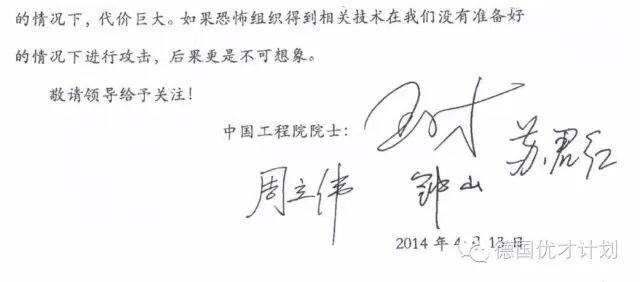 的情况下，代价巨大。如果恐怖组织得到相关技术在我们没有准备好
的情况下进行攻击，后果更是不可想象。
敬请领导给予关注！
中国工程院院士：
苏君红
周立伟 钟山
2014年4月13日
德国优才计划